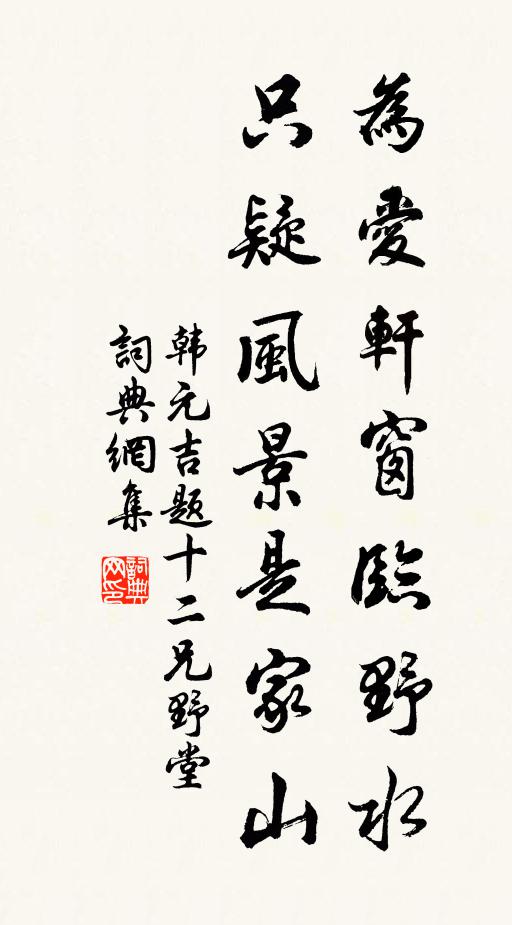 為愛軒窗臨野水
只疑風景是家山
韩元吉题十二兄野堂
詞典網集
詞典网印